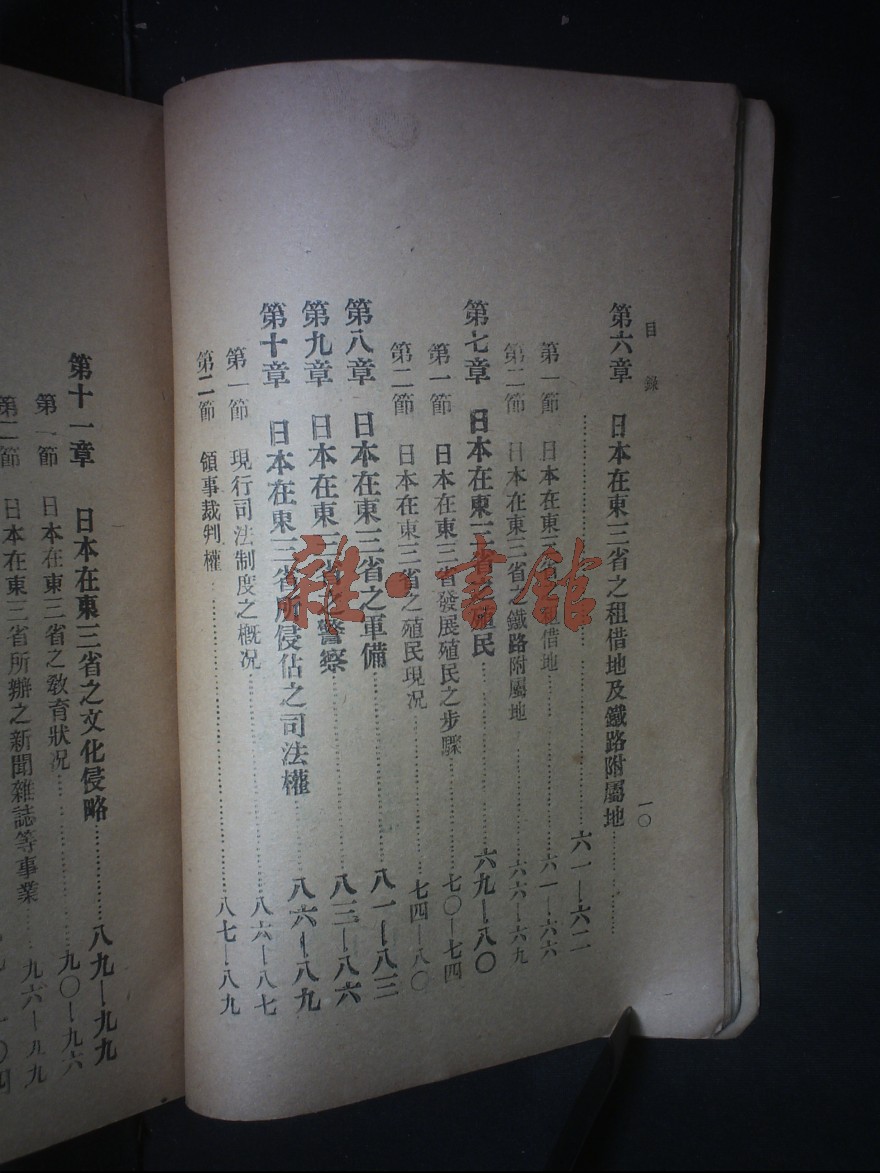 目錄
一〇
第六章 日本在東三省之租借地及鐵路附屬地……
……六一—六二
第一節 日本在東三省 借地……六一—六六
第二節 日本在東三省之鐵路附屬地……六六—六九
第七章 日本在東三省 殖民……六九—八〇
第一節 日本在東三省發展殖民之步驟……七〇—七四
第二節 日本在東三省之殖民現况……七四—八〇
第八章 日本在東三省之軍備……八一—八三
第九章 日本在東三省 警察……八三—八六
第十章 日本在東三省所侵佔之司法權……八六—八九
第一節 現行司法制度之概况……八六—八七
第二節 領事裁判權……八七—八九
第十一章 日本在東三省之文化侵略……八九—九九
第一節 日本在東三省之教育狀况……九〇—九六
第二節 日本在東三省所辦之新聞雜誌等事業……九六—九九
雜·書館